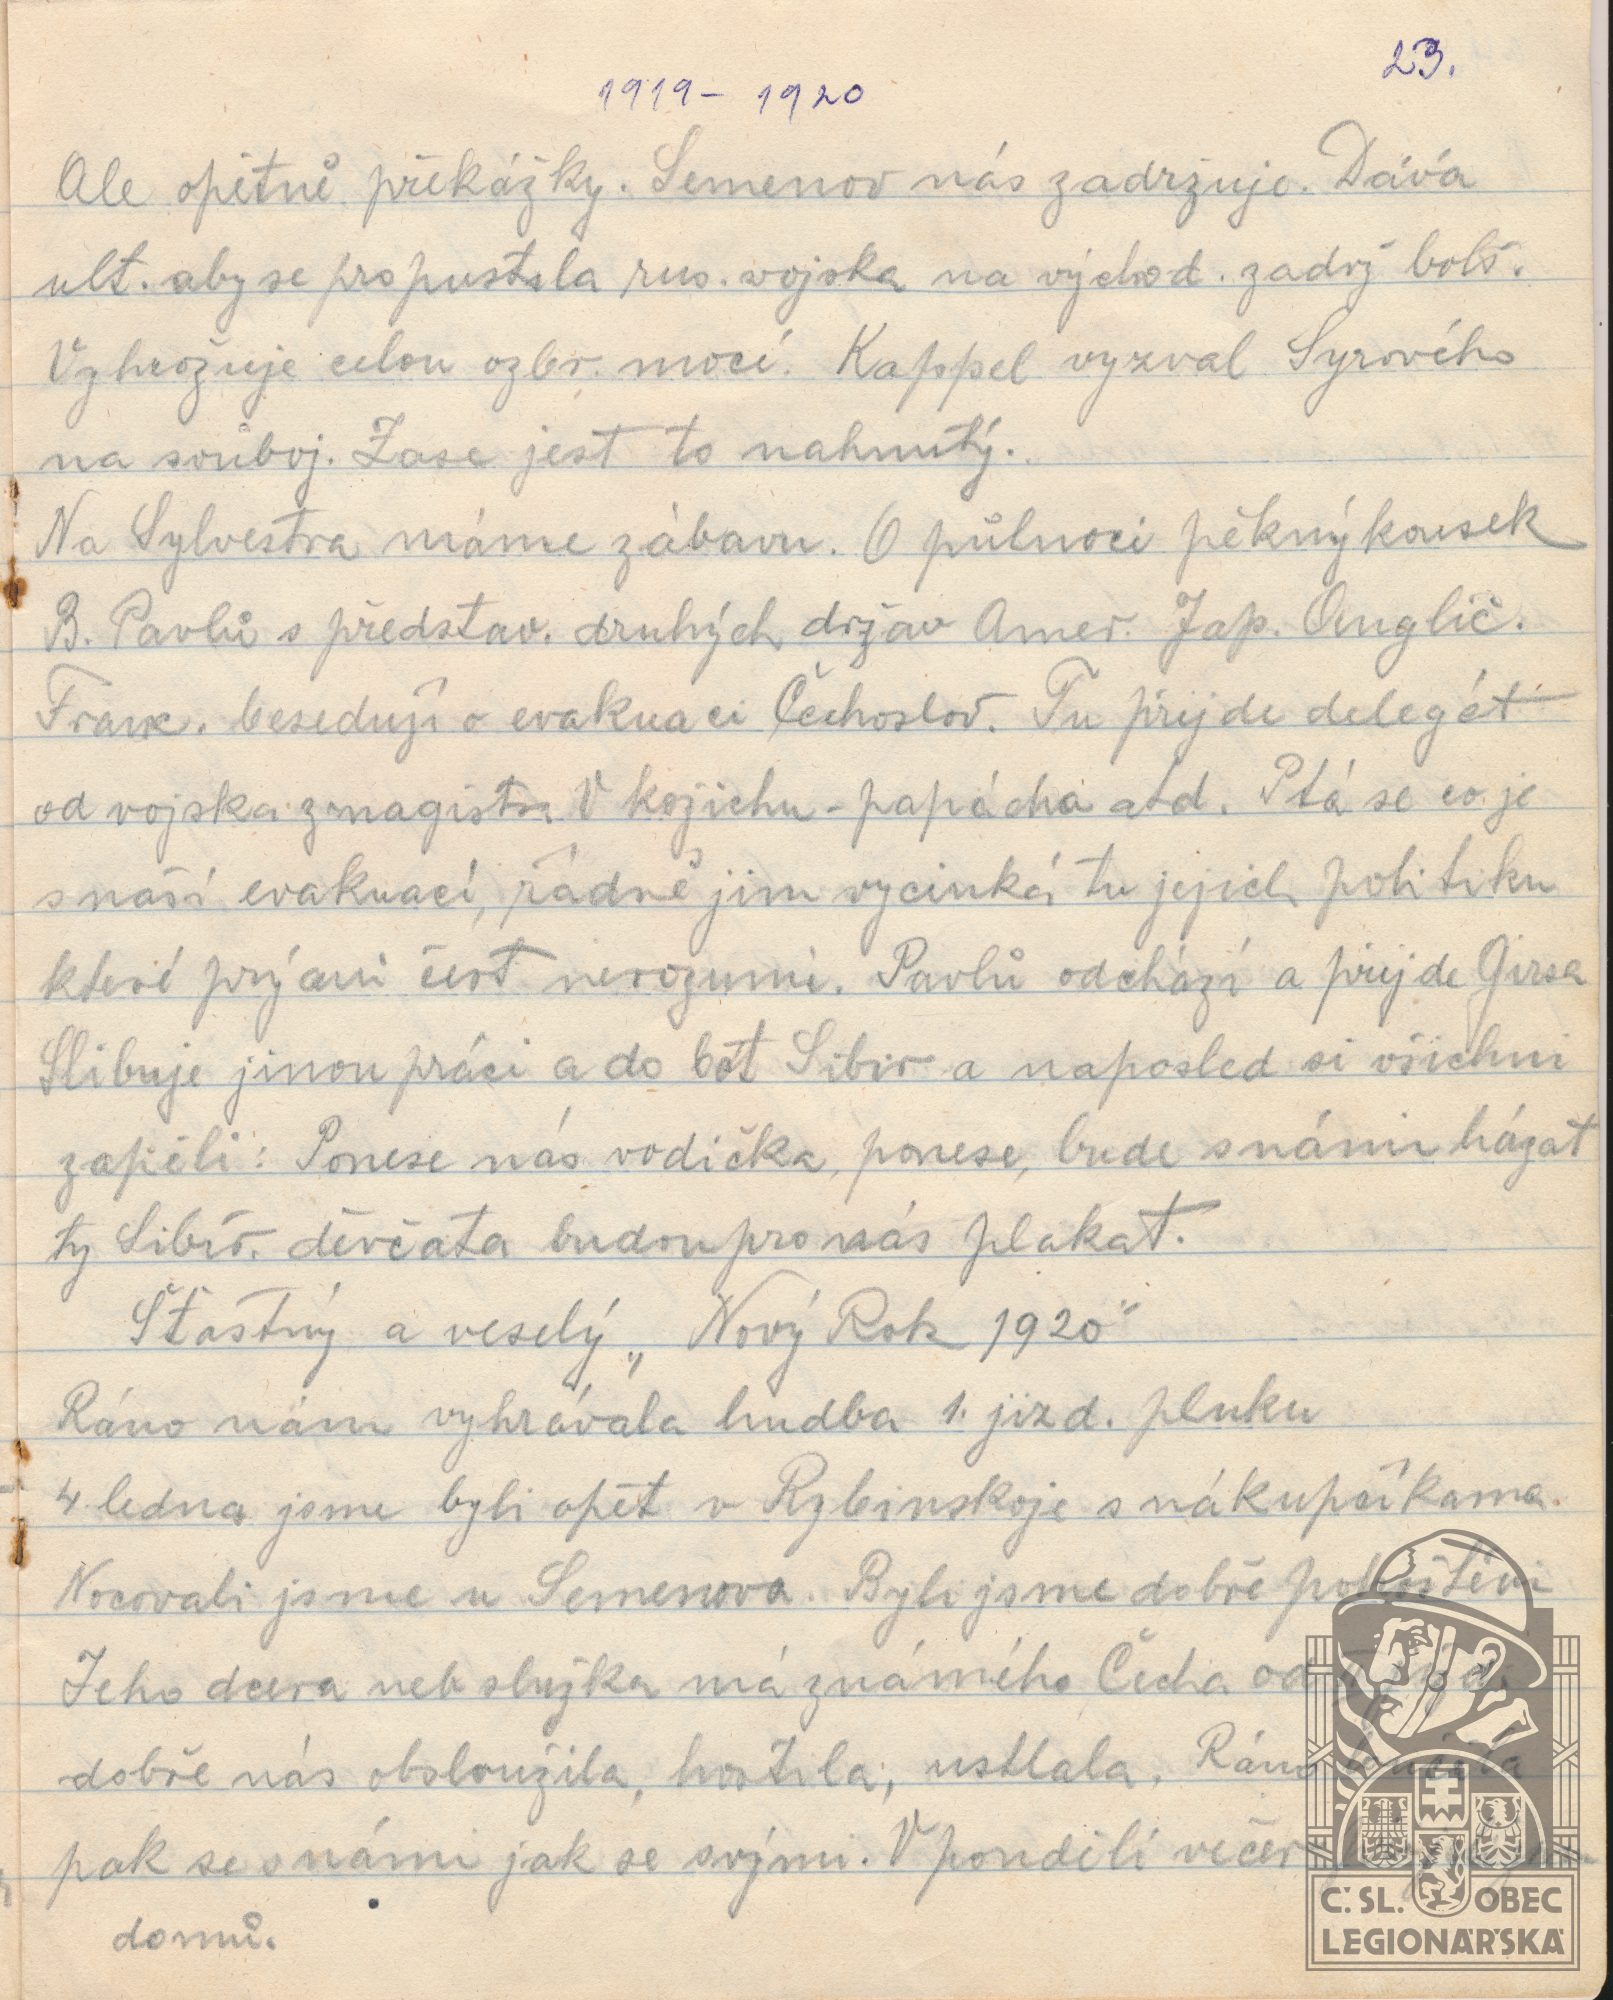 23.
1919 - 1920
Ale opětně překážky. Semenov nás zadržuje. Dává
ult. aby se propustila rus. vojska na východ. zadrž bolš.
Vyhrožuje celou ozbr. mocí. Kappel vyzval Syrového
na souboj. Zase jest to nahnutý.
Na Sylvestra máme zábavu. O půlnoci pěkný kousek
B. Pavlů s představ. druhých držav Amer. Jap. Anglič.
Franc. besedují o evakuaci Čechoslov. Tu přijde delegát
od vojska z magistr. V kožichu - papácha atd. Ptá se co je
s naší evakuací, řádně jim vycinká tu jejich politiku
které prý ani čert nerozumí. Pavlů odchází a přijde Girsa
Slibuje jinou práci a do bot Sibir a naposled si všichni
zapěli: Ponese nás vodička, ponese, bude s námi házat
ty Sibiř. děvčata budou pro nás plakat.
Šťastný a veselý „Nový Rok 1920"
Ráno nám vyhrávala hudba 1. jizd. pluku
4. ledna jsme byli opět v Rybinskoje s nákupčíkama.
Nocovali jsme u Semenova. Byli jsme dobře pohoštěni
Jeho dcera neb služka má známého Čecha od
dobře nás obsloužila, hostila, ustlala, Ráno
pak se s námi jak se svými. V pondělí večer
domů.
Č. SL. OBEC
LEGIONÁŘSKÁ